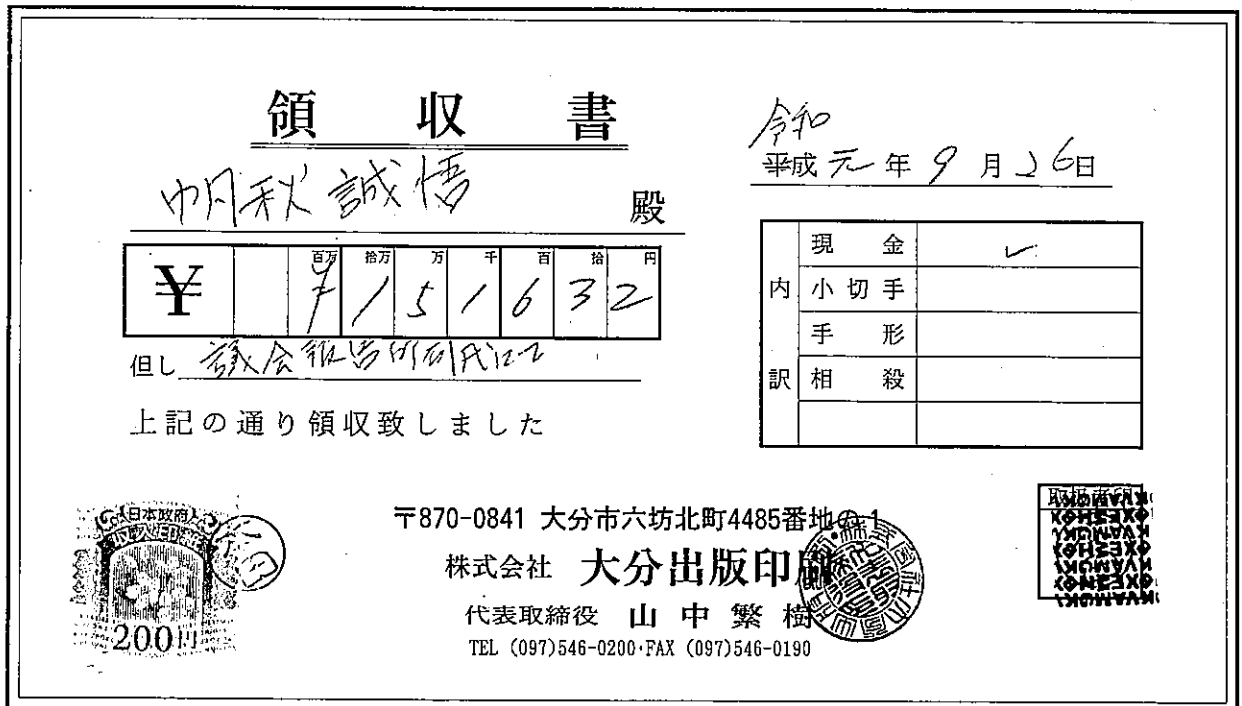 領収書
令和
平成元年9月26日
帆秋誠悟 殿
百万 拾万 万 千 百 拾 円
¥ 1 5 1 6 3 2
但し 議会報告印刷代にて
上記の通り領収致しました
内訳
現金 ✓
小切手
手形
相殺
日本政府
収入印紙
200円
〒870-0841 大分市六坊北町4485番地の1
株式会社 大分出版印刷
代表取締役 山中繁樹
TEL (097)546-0200・FAX (097)546-0190